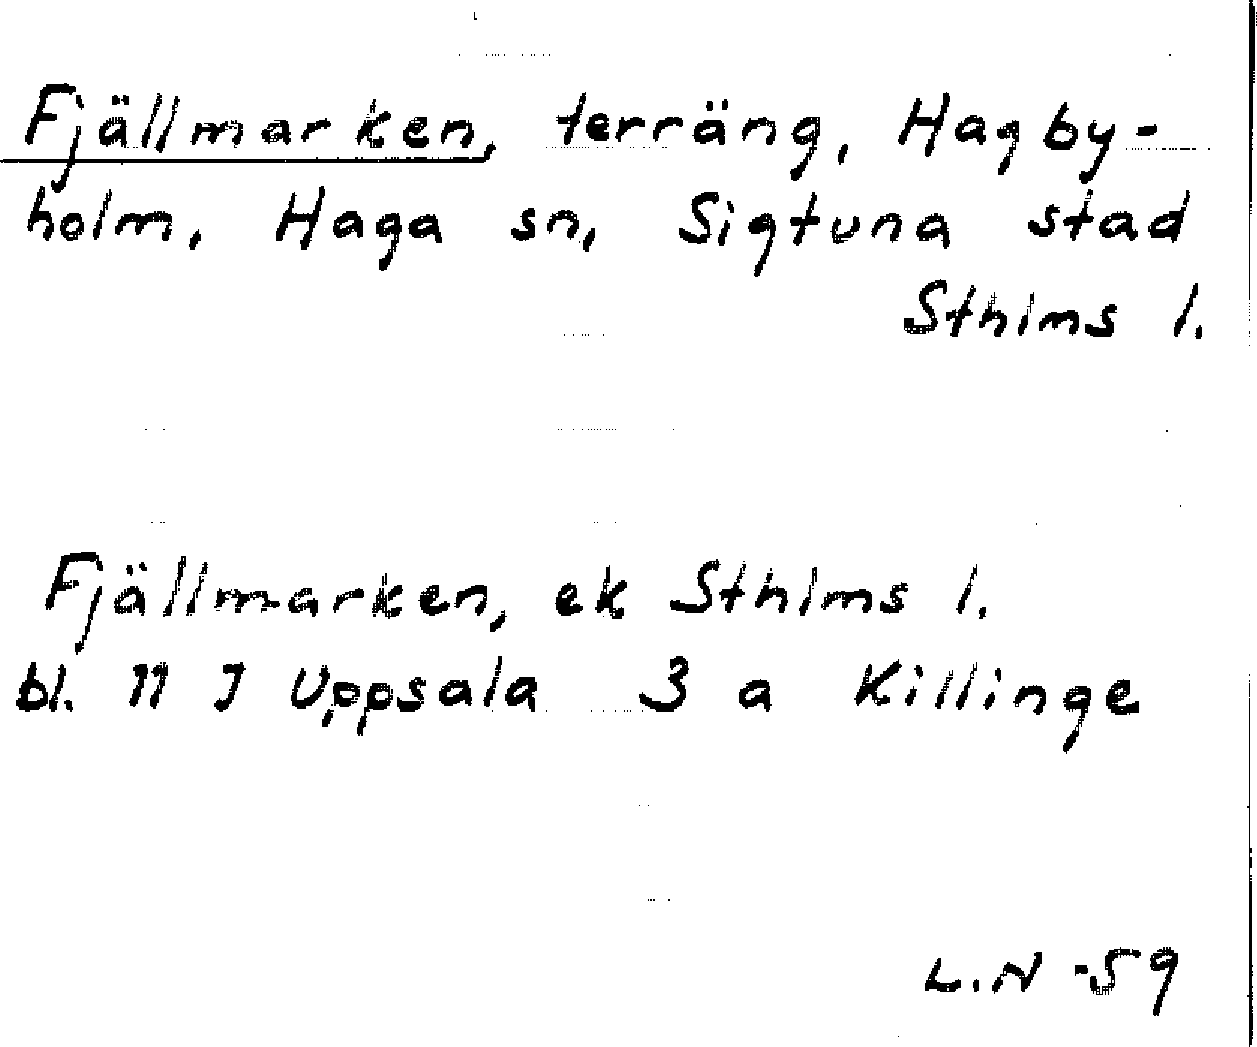 Fjällmarken, terräng, Hagby-
holm, Haga sn, Sigtuna stad
Sthlms l.
Fjällmarken, ek Sthlms l.
bl. 11 J Uppsala 3 a Killinge
L.N -59